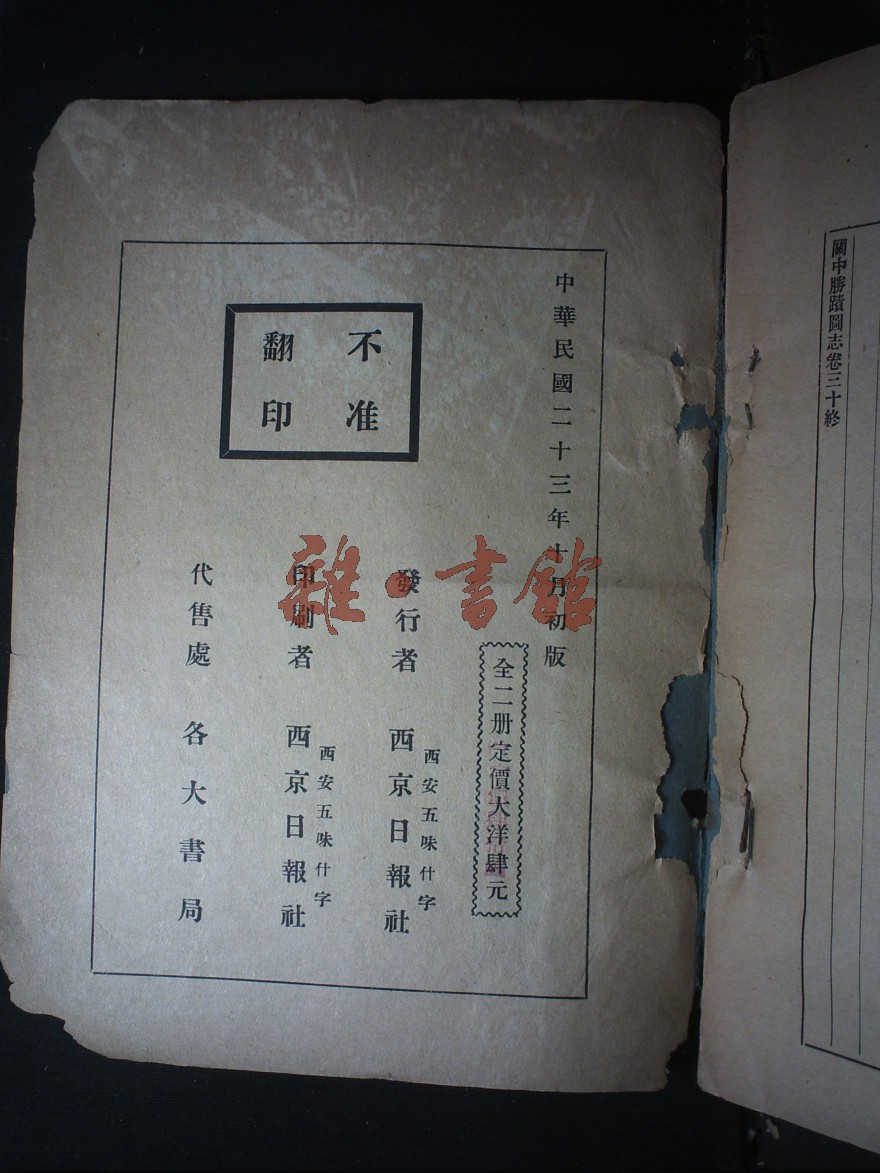 關中勝蹟圖志卷三十終
中華民國二十三年十月初版
全二册定價大洋肆元
不准
翻印
西安五味什字
發行者 西京日報社
西安五味什字
印刷者 西京日報社
代售處 各大書局
雜·書館